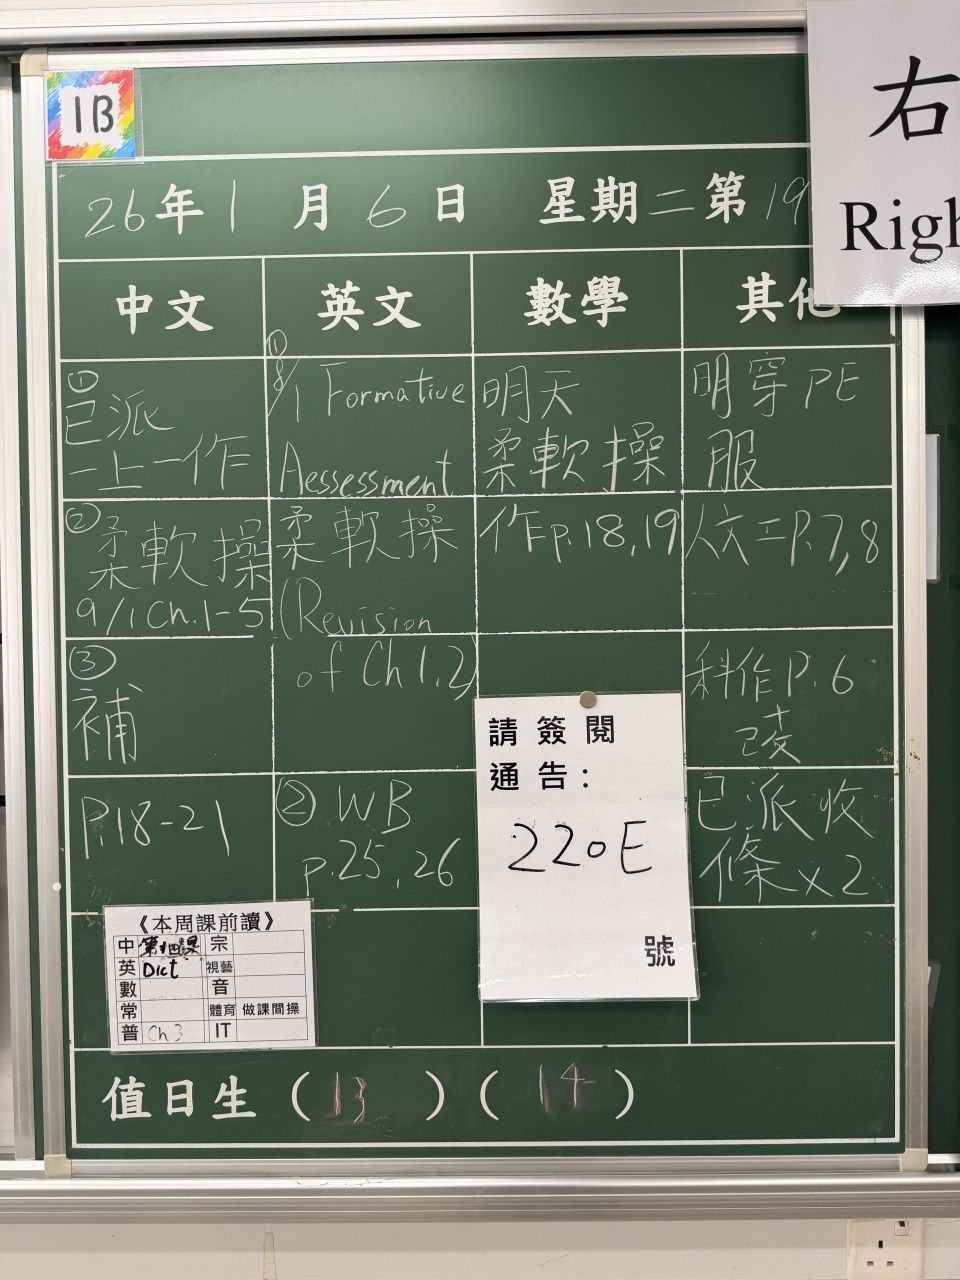 1B
右
Righ
26年1月6日 星期二第19
中文 英文 數學 其他
①
已派
一上一作
②柔軟操
9/1 Ch.1-5
③
補
P.18-21
①
8/1 Formative
Aessessment
柔軟操
(Revision
of Ch 1,2)
②WB
p.25,26
明天
柔軟操
作p.18,19
明穿PE
服
人文工P.7,8
科作P.6
已交
已派收
條x2
請簽閱
通告：
220E
號
《本周課前讀》
中 第十四課 宗
英 Dict 視藝
數 音
常 體育 做課間操
普 Ch 3 IT
值日生（13）（14）